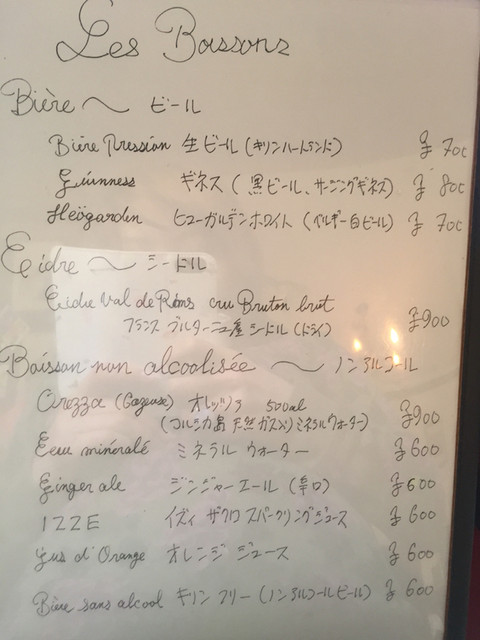 Les Boissons
Bière ~ ビール
Bière Pression 生ビール (キリンハートランド) ¥ 700
Guinness ギネス (黒ビール、サージングギネス) ¥ 800
Heögarden ヒューガルデンホワイト (ベルギー白ビール) ¥ 700
Cidre ~ シードル
Cidre Val de Réns cru Breton brut
フランス ブルターニュ産 シードル (ドライ) ¥900
Boisson non alcoolisée ~ ノンアルコール
Orezza (Gazeuse) オレッツァ 500ml ¥900
(コルシカ島 天然ガス入りミネラルウォーター)
Eeu minéralé ミネラル ウォーター ¥600
Ginger ale ジンジャーエール (辛口) ¥600
IZZE イズィ ザクロ スパークリングジュース ¥600
Jus d'Orange オレンジ ジュース ¥600
Bière sans alcool キリン フリー (ノンアルコールビール) ¥ 600